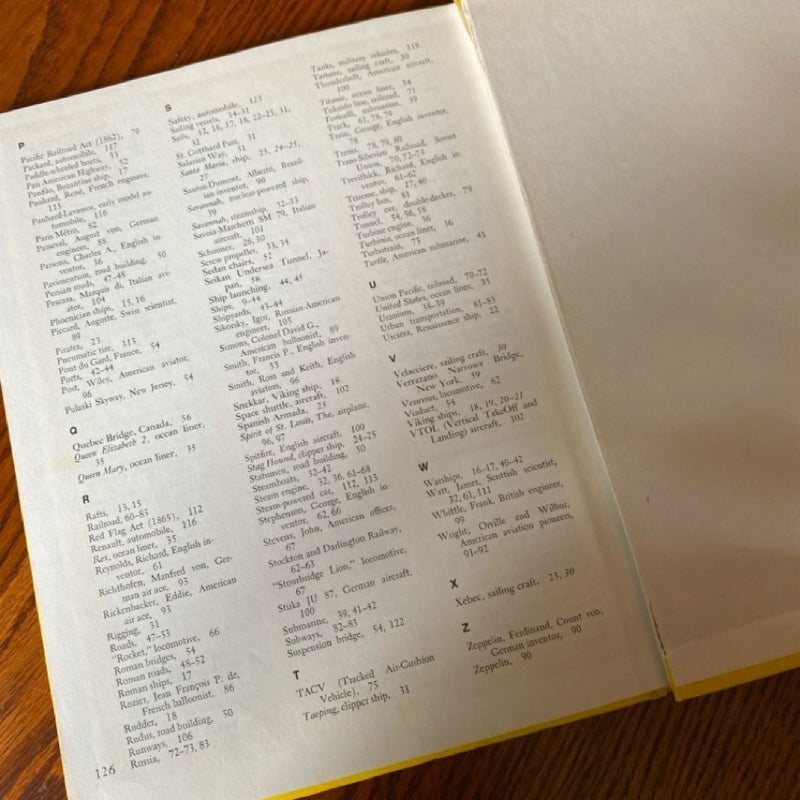 P
Pacific Railroad Act (1862), 70
Packard, automobile, 117
Paddle-wheeled boats, 33
Pan American Highway, 52
Panfilo, Byzantine ship, 17
Panhard, René, French engineer,
113
Panhard-Levassor, early model au-
tomobile, 116
Paris Métro, 82
Parseval, August von, German
engineer, 88
Parsons, Charles A., English in-
ventor, 36
Pavimentum, road building, 50
Persian roads, 47-48
Pescara, Marquis di, Italian avi-
ator, 104
Phoenician ships, 15, 16
Piccard, Auguste, Swiss scientist,
89
Pirates, 23
Pneumatic tire, 113
Pont du Gard, France, 54
Ports, 42-44
Post, Wiley, American aviator,
96
Pulaski Skyway, New Jersey, 54
Q
Quebec Bridge, Canada, 56
Queen Elizabeth 2, ocean liner,
35
Queen Mary, ocean liner, 35
R
Rafts, 13, 15
Railroad, 60-83
Red Flag Act (1865), 112
Renault, automobile, 116
Rex, ocean liner, 35
Reynolds, Richard, English in-
ventor, 61
Richthofen, Manfred von, Ger-
man air ace, 93
Rickenbacker, Eddie, American
air ace, 93
Rigging, 31
Roads, 47-53
"Rocket," locomotive, 66
Roman bridges, 54
Roman roads, 48-52
Roman ships, 17
Rozier, Jean François P. de,
French balloonist, 86
Rudder, 18
Rudus, road building, 50
Runways, 106
Russia, 72-73, 83
S
Safety, automobile, 123
Sailing vessels, 14-31
Sails, 12, 16, 17, 18, 22-23, 31,
32
St. Gotthard Pass, 51
Salarian Way, 51
Santa Maria, ship, 23, 24-25,
27
Santos-Dumont, Alberto, Brazil-
ian inventor, 90
Savannah, nuclear-powered ship,
39
Savannah, steamship, 32-33
Savoia-Marchetti SM 79, Italian
aircraft, 101
Schooner, 26, 30
Screw propeller, 33, 34
Sedan chairs, 52
Seikan Undersea Tunnel, Ja-
pan, 58
Ship launching, 44, 45
Ships, 9-44
Shipyards, 43-44
Sikorsky, Igor, Russian-American
engineer, 105
Simons, Colonel David G.,
American balloonist, 89
Smith, Francis P., English inven-
tor, 33
Smith, Ross and Keith, English
aviators, 96
Snekkar, Viking ship, 18
Space shuttle, aircraft, 102
Spanish Armada, 23
Spirit of St. Louis, The, airplane,
96, 97
Spitfire, English aircraft, 100
Stag Hound, clipper ship, 24-25
Statumen, road building, 50
Steamboats, 32-42
Steam engine, 32, 36, 61-68
Steam-powered car, 112, 113
Stephenson, George, English in-
ventor, 62, 66
Stevens, John, American officer,
67
Stockton and Darlington Railway,
62-63
"Stourbridge Lion," locomotive,
67
Stuka JU 87, German aircraft,
100
Submarine, 39, 41-42
Subways, 82-83
Suspension bridge, 54, 122
T
TACV (Tracked Air-Cushion
Vehicle), 75
Taeping, clipper ship, 31
Tanks, military vehicles, 118
Tartane, sailing craft, 30
Thunderbolt, American aircraft,
100
Titanic, ocean liner, 34
Tokaido line, railroad, 71
Toricelli, submarine, 39
Track, 61, 78, 79
Train, George, English inventor,
78
Trams, 78, 79, 80
Trans-Siberian Railroad, Soviet
Union, 70, 72-73
Trevithick, Richard, English in-
ventor, 61-62
Trireme, ship, 17, 40
Trolley bus, 83
Trolley car, double-decker, 79
Tunnel, 54, 56, 58
Turbine engine, 36
Turbinia, ocean liner, 36
Turbotrain, 75
Turtle, American submarine, 41
U
Union Pacific, railroad, 70-72
United States, ocean liner, 35
Uranium, 38-39
Urban transportation, 81-83
Usciera, Renaissance ship, 22
V
Velacciere, sailing craft, 30
Verrazano Narrows Bridge,
New York, 59
Vesuvius, locomotive, 62
Viaduct, 54
Viking ships, 18, 19, 20-21
VTOL (Vertical TakeOff and
Landing) aircraft, 102
W
Warships, 16-17, 40-42
Watt, James, Scottish scientist,
32, 61, 111
Whittle, Frank, British engineer,
99
Wright, Orville and Wilbur,
American aviation pioneers,
91-92
X
Xebec, sailing craft, 23, 30
Z
Zeppelin, Ferdinand, Count von,
German inventor, 90
Zeppelin, 90
126